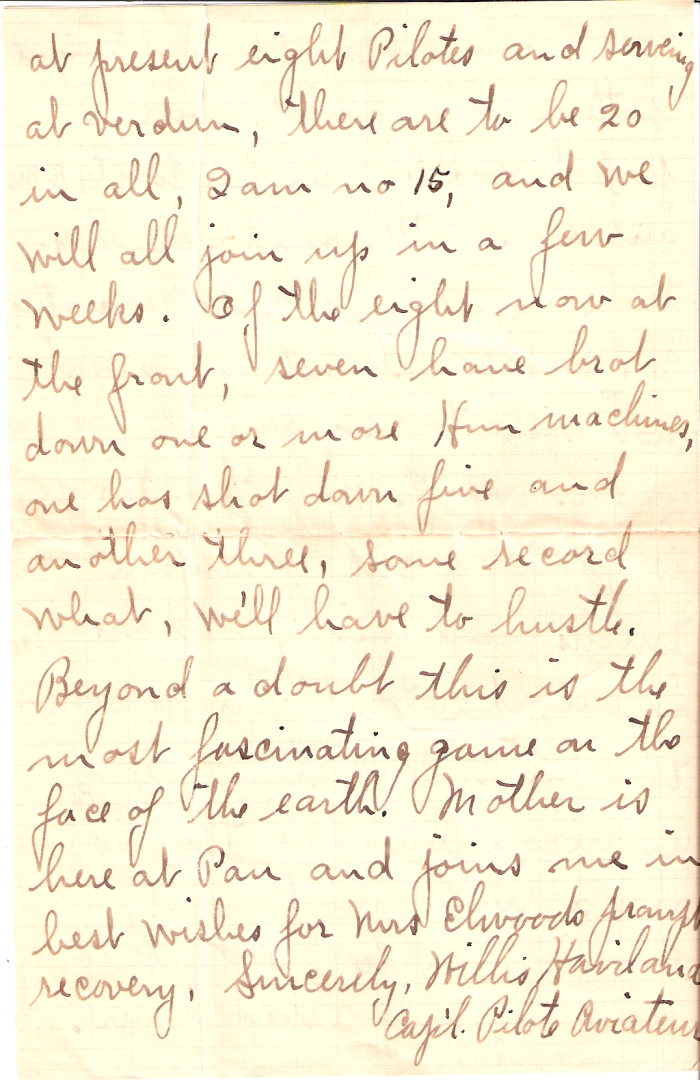 at present eight Pilotes and serveing
at Verdun, there are to be 20
in all, I am no 15, and we
will all join up in a few
weeks. Of the eight now at
the front, seven have brot
down one or more Hun machines,
one has shot down five and
another three, some record
what, we'll have to hustle.
Beyond a doubt this is the
most fascinating game on the
face of the earth. Mother is
here at Pau and joins me in
best wishes for Mrs Elwoods prompt
recovery, Sincerely, Willis Haviland
Cap'l. Pilote Aviateur